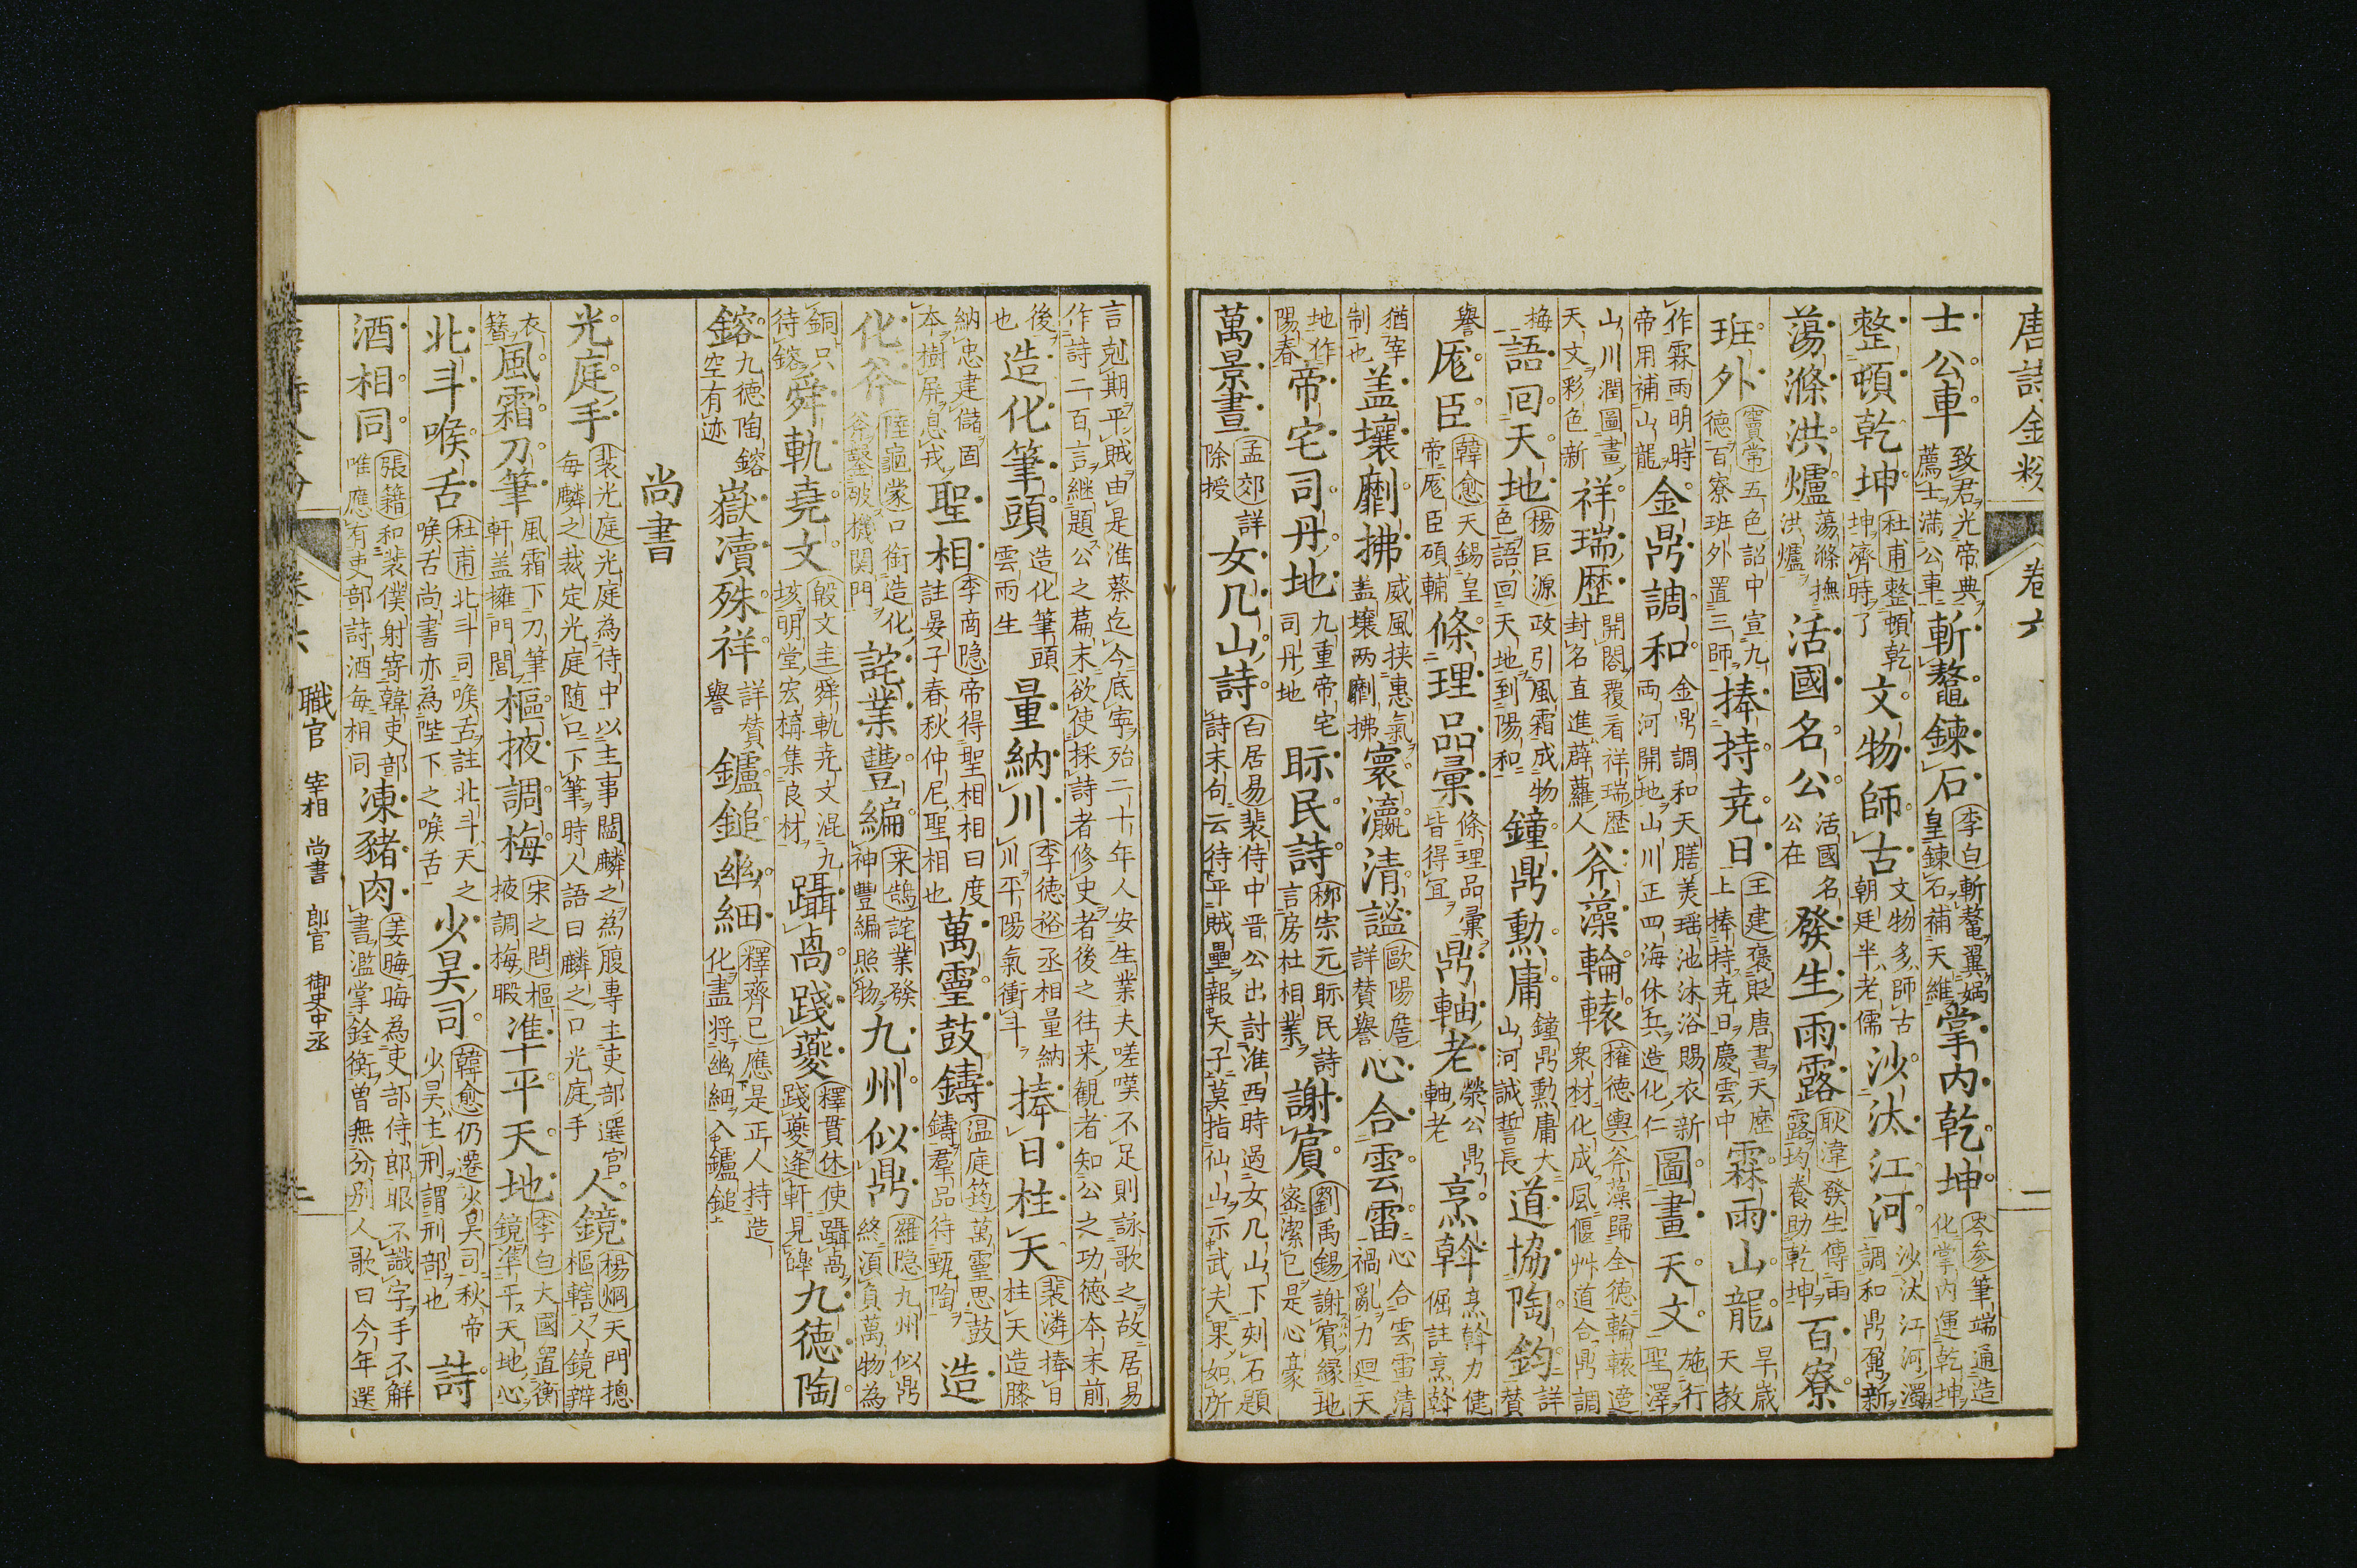 唐詩金粉 卷六 二
士公車 致君光帝典薦士滿公車 斬鼇鍊石 李白斬鼇翼媧皇鍊石補天維 掌内乾坤 岑参筆端通造化掌内運乾坤
整頓乾坤 杜甫整頓乾坤濟時了 文物師古 文物多師古朝廷半老儒 沙汰江河 沙汰江河濁調和鼎鼐新
蕩滌洪爐 蕩滌撫洪爐 活國名公 活國名公在 發生雨露 耿湋發生傳雨露均養助乾坤 百寮
班外 竇常五色詔中宣九德百寮班外置三師 捧持尭日 王建褒貶唐書天歴上捧持尭日慶雲中 霖雨山龍 旱歳天教
作霖雨明時帝用補山龍 金鼎調和 金鼎調和天膳美瑶池沐浴賜衣新両河開地山川正四海休兵造化仁 圖畫天文 施行聖澤
山川潤圖畫天文彩色新 祥瑞歴 開閤覆看祥瑞歴封名直進薜蘿人 斧藻輪轅 権徳輿斧藻歸全徳輪轅適衆材化成風偃艸道合鼎調
梅 語回天地 楊巨源政引風霜成物色語回天地到陽和 鐘鼎勲庸 鐘鼎勲庸大山河誠誓長 道協陶鈞 詳賛
譽 厖臣 韓愈天錫皇帝厖臣碩輔 條理品彙 條理品彙皆得宜 鼎軸老 滎公鼎軸老 烹斡 烹斡力健倔註烹斡
猶宰制也 盖壤劘拂 威風挟惠氣盖壤両劘拂 寰瀛清謐 歐陽詹詳賛譽 心合雲雷 心合雲雷清禍亂力廻天
地作陽春 帝宅司丹地 九重帝宅司丹地 眎民詩 栁宗元眎民詩言房杜相業 謝賓 劉禹錫謝賓縁地密潔已是心豪
萬景晝 孟郊詳除授 女几山詩 白居易裴侍中晋公出討淮西時過女几山下刻石題詩末句云待平賊壘報天子莫指仙山示武夫果如所
言剋期平賊由是淮蔡迄今底寧殆二十年人安生業夫嗟嘆不足則詠歌之故居易作詩二百言継題公之篇末欲使採詩者修史者後之往来觀者知公之功徳本末前
後也 造化筆頭 造化筆頭雲雨生 量納川 李徳裕丞相量納川平陽氣衝斗 捧日柱天 裴潾捧日柱天造膝
納忠建儲固本樹屏息戎 聖相 李商隐帝得聖相相曰度註晏子春秋仲尼聖相也 萬靈鼓鑄 温庭筠萬靈思鼓鑄羣品待甄陶 造
化斧 陸龜蒙口銜造化斧鑿破機関門 詫業豐編 来鵠詫業發神豐編照物 九州似鼎 羅隐九州似鼎終湏負萬物為
銅只待鎔 舜軌堯文 殷文圭舜軌尭文混九垓明堂宏構集良材 躡卨踐夔 釋貫休使躡卨踐夔逢軒見皥 九徳陶
鎔 九徳陶鎔空有迹 嶽瀆殊祥 詳賛譽 鑪鎚幽細 釋齊已應是正人持造化盡将幽細入鑪鎚
尚書
光庭手 裴光庭光庭為侍中以主事閻麟之為腹専主吏部選官毎麟之裁定光庭随口下筆時人語曰麟之口光庭手 人鏡 楊烱天門摠樞轄人鏡辨
衣簪 風霜刀筆 風霜下刀筆軒盖擁門閭 樞掖調梅 宋之問樞掖調梅暇 准平天地 李白大國置衡鏡准平天地心
北斗喉舌 杜甫北斗司喉舌註北斗天之喉舌尚書亦為陛下之喉舌 少昊司 韓愈仍遷少昊司秋帝少昊主刑謂刑部也 詩
酒相同 張籍和裴僕射寄韓吏部唯應有吏部詩酒毎相同 凍豬肉 姜晦晦為吏部侍郎眼不識字手不解書濫掌銓衡曽無分別人歌曰今年選
職官 宰相 尚書 郎官 御史中丞